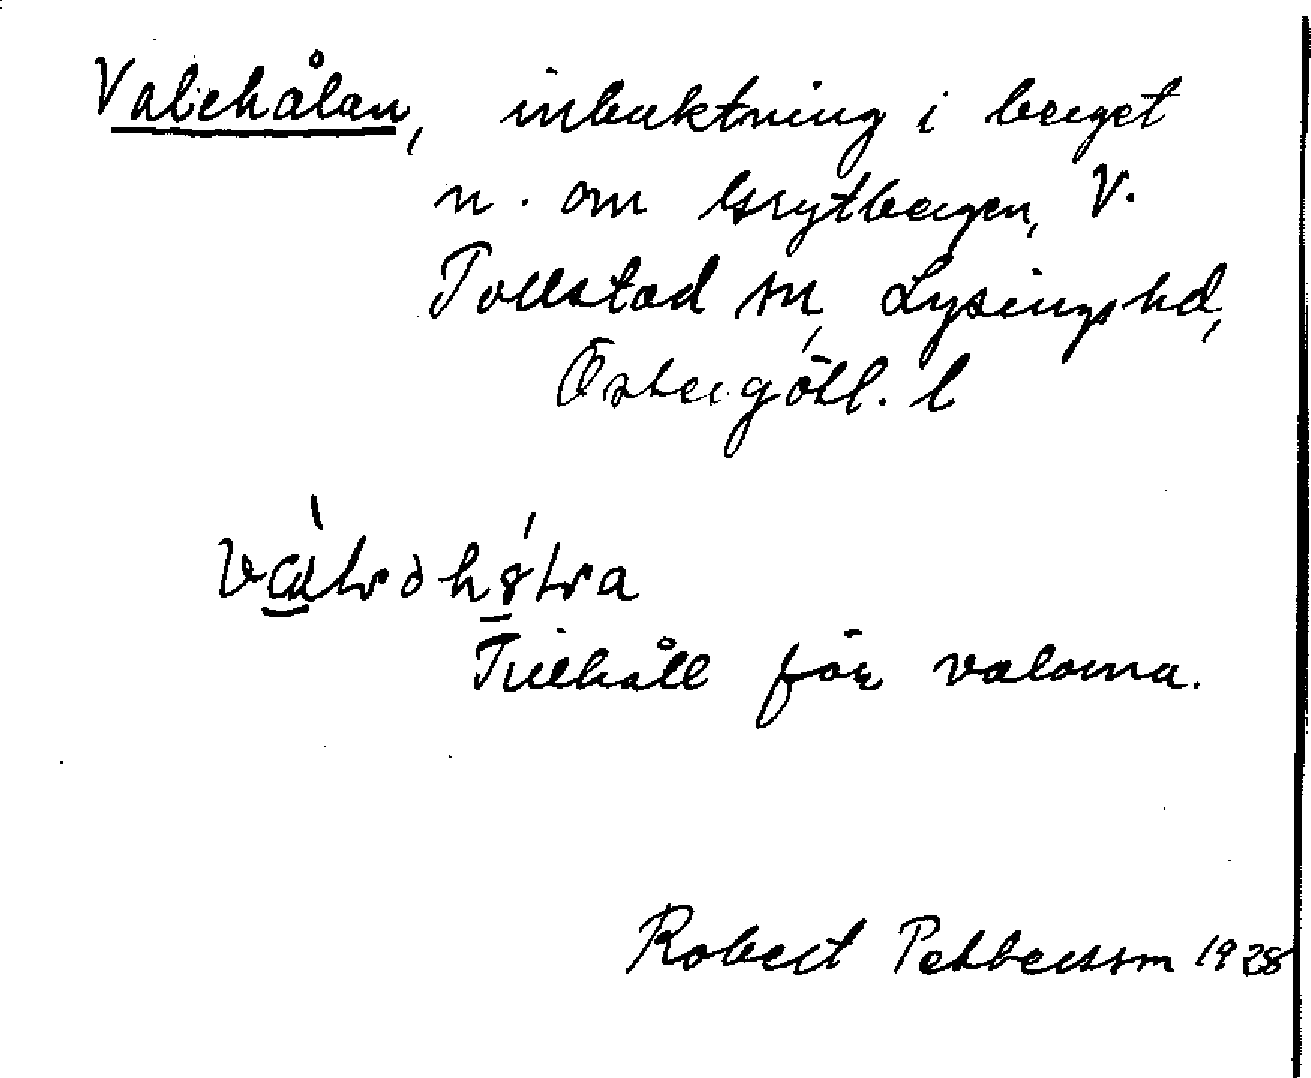 Valehålan, inbuktning i berget
n. om Grytbergen, V.
Tollstad sn, Lysings hd,
Östergötl. l
Tillhåll för valarna.
Robert Pettersson 1928